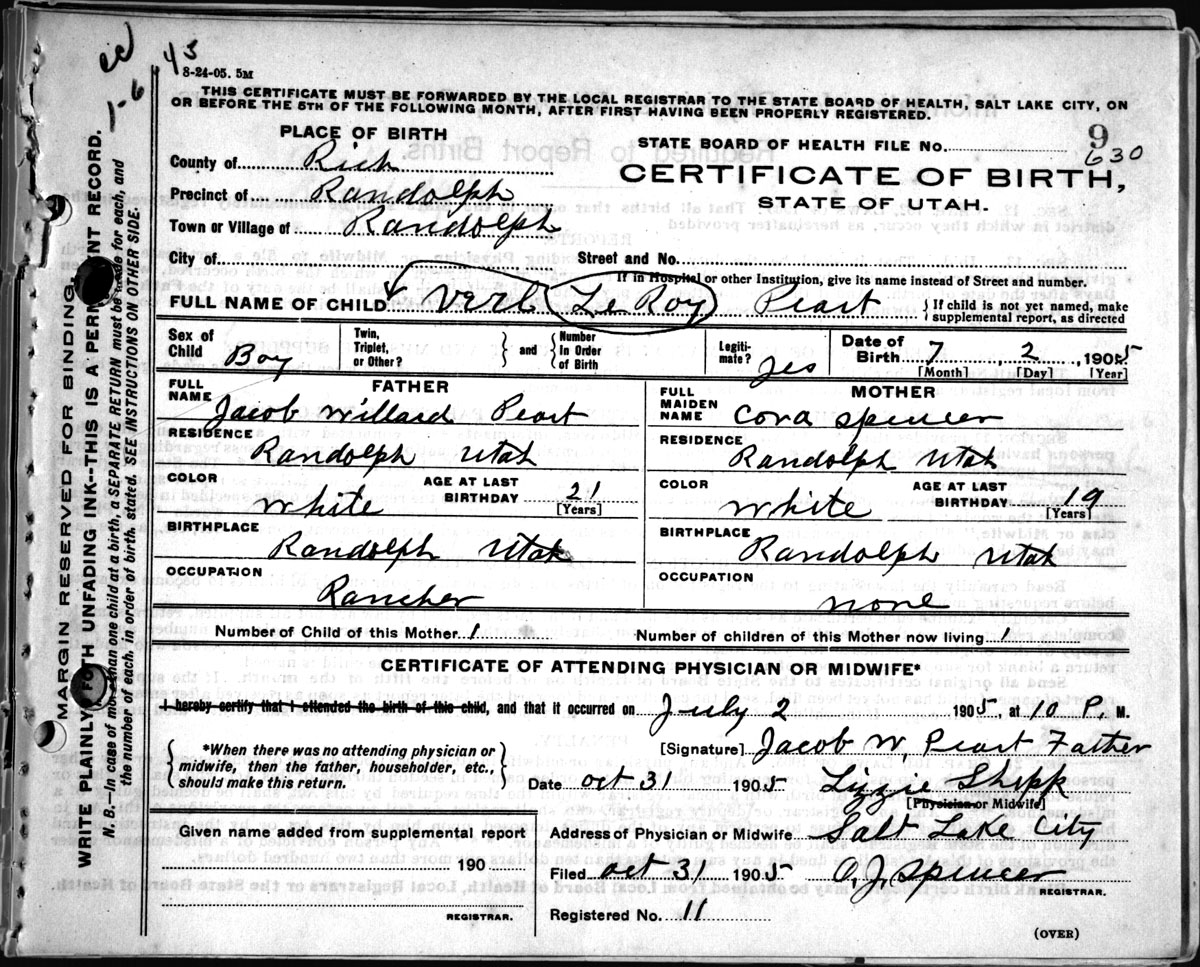 43
8-24-05. 5M
1-6
THIS CERTIFICATE MUST BE FORWARDED BY THE LOCAL REGISTRAR TO THE STATE BOARD OF HEALTH, SALT LAKE CITY, ON
OR BEFORE THE 5TH OF THE FOLLOWING MONTH, AFTER FIRST HAVING BEEN PROPERLY REGISTERED.
PLACE OF BIRTH
STATE BOARD OF HEALTH FILE No. 9
630
County of Rich
CERTIFICATE OF BIRTH,
Precinct of Randolph
STATE OF UTAH.
Town or Village of Randolph
City of Street and No.
If in Hospital or other Institution, give its name instead of Street and number.
FULL NAME OF CHILD Verl Le Roy Peart { If child is not yet named, make supplemental report, as directed
Sex of Child Boy Twin, Triplet, or Other? } and { Number In Order of Birth Legiti- mate? yes Date of Birth 7 2, 1905
[Month] [Day] [Year]
FATHER MOTHER
FULL NAME Jacob Willard Peart FULL MAIDEN NAME Cora Spencer
RESIDENCE Randolph Utah RESIDENCE Randolph Utah
COLOR White AGE AT LAST BIRTHDAY 21 [Years] COLOR White AGE AT LAST BIRTHDAY 19 [Years]
BIRTHPLACE Randolph Utah BIRTHPLACE Randolph Utah
OCCUPATION Rancher OCCUPATION none
Number of Child of this Mother 1 Number of children of this Mother now living 1
CERTIFICATE OF ATTENDING PHYSICIAN OR MIDWIFE*
I hereby certify that I attended the birth of this child, and that it occurred on July 2 1905, at 10 P. M.
{ *When there was no attending physician or midwife, then the father, householder, etc., should make this return. }
[Signature] Jacob W. Peart Father
Date Oct 31 1905 Lizzie Shipp
[Physician or Midwife]
Given name added from supplemental report
190
REGISTRAR.
Address of Physician or Midwife Salt Lake City
Filed Oct 31 1905 O. J. Spencer
REGISTRAR.
Registered No. 11
(OVER)
MARGIN RESERVED FOR BINDING.
WRITE PLAINLY WITH UNFADING INK--THIS IS A PERMANENT RECORD.
N. B.—In case of more than one child at a birth, a SEPARATE RETURN must be made for each, and
the number of each, in order of birth, stated. SEE INSTRUCTIONS ON OTHER SIDE.